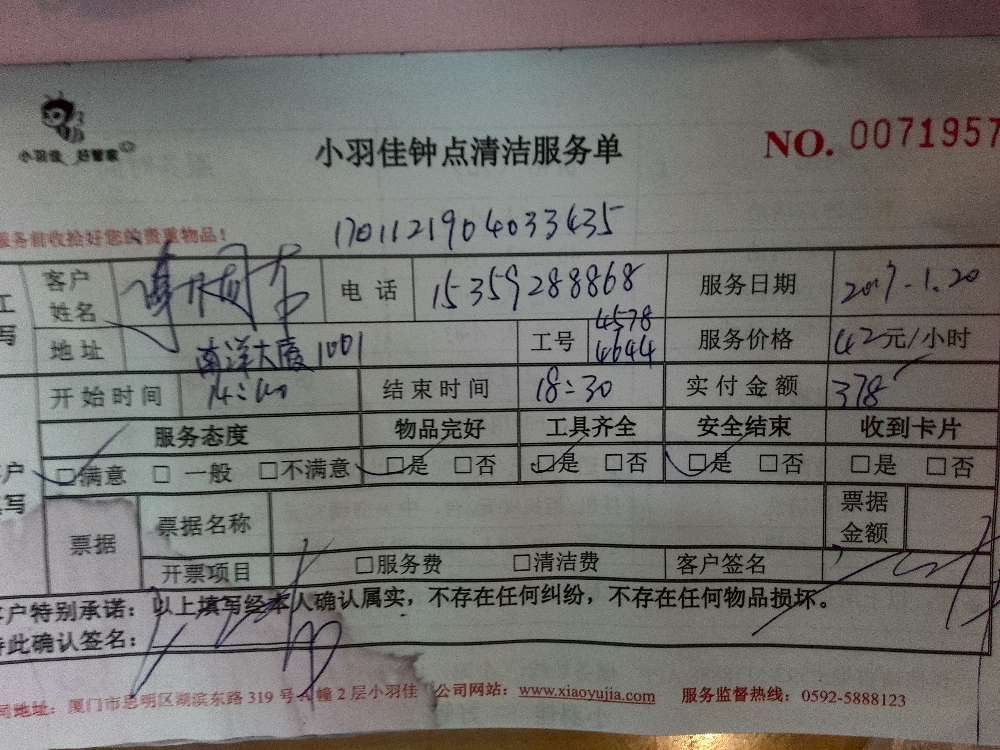 小羽佳 好管家
小羽佳钟点清洁服务单
NO. 0071957
服务前收拾好您的贵重物品!
1701121904033435
客户姓名 电话 15359288868 服务日期 2017.1.20
地址 南洋大厦1001 工号 4578 4644 服务价格 42元/小时
开始时间 14:00 结束时间 18:30 实付金额 378
服务态度 物品完好 工具齐全 安全结束 收到卡片
□满意 □一般 □不满意 □是 □否 □是 □否 □是 □否 □是 □否
票据 票据名称 票据金额
开票项目 □服务费 □清洁费 客户签名
客户特别承诺:以上填写经本人确认属实,不存在任何纠纷,不存在任何物品损坏。
特此确认签名:
司地址:厦门市思明区湖滨东路319号A幢2层小羽佳 公司网站:www.xiaoyujia.com 服务监督热线:0592-5888123